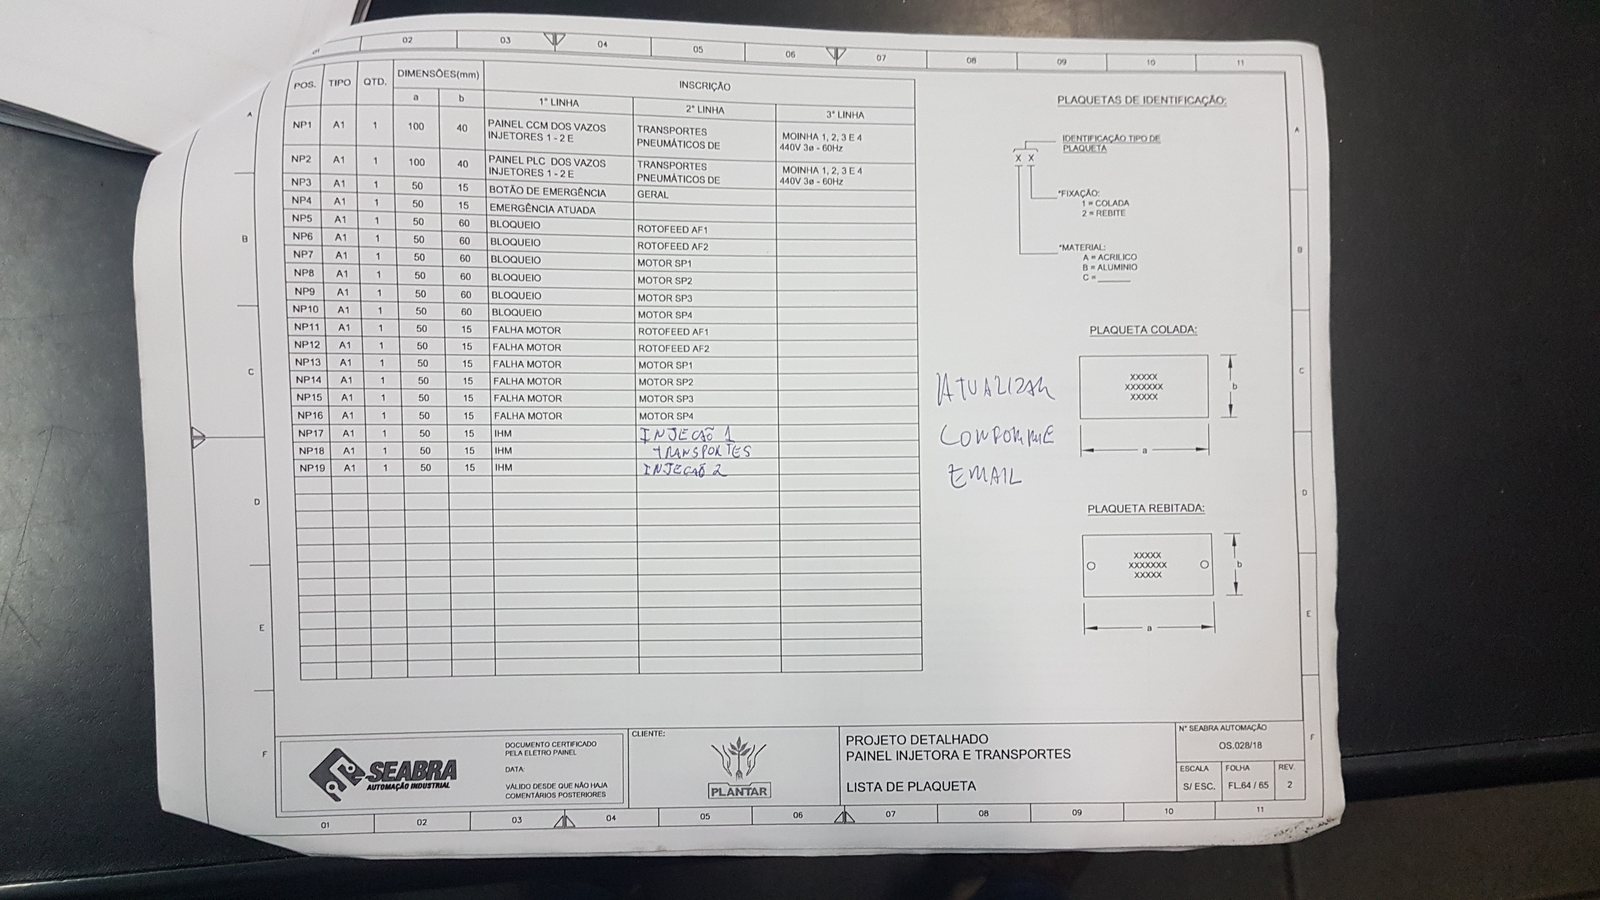 01 02 03 04 05 06 07 08 09 10 11
POS. TIPO QTD. DIMENSÕES(mm) INSCRIÇÃO
a b 1° LINHA 2° LINHA 3° LINHA
NP1 A1 1 100 40 PAINEL CCM DOS VAZOS INJETORES 1 - 2 E TRANSPORTES PNEUMÁTICOS DE MOINHA 1, 2, 3 E 4 440V 3ø - 60Hz
NP2 A1 1 100 40 PAINEL PLC DOS VAZOS INJETORES 1 - 2 E TRANSPORTES PNEUMÁTICOS DE MOINHA 1, 2, 3 E 4 440V 3ø - 60Hz
NP3 A1 1 50 15 BOTÃO DE EMERGÊNCIA GERAL
NP4 A1 1 50 15 EMERGÊNCIA ATUADA
NP5 A1 1 50 60 BLOQUEIO ROTOFEED AF1
NP6 A1 1 50 60 BLOQUEIO ROTOFEED AF2
NP7 A1 1 50 60 BLOQUEIO MOTOR SP1
NP8 A1 1 50 60 BLOQUEIO MOTOR SP2
NP9 A1 1 50 60 BLOQUEIO MOTOR SP3
NP10 A1 1 50 60 BLOQUEIO MOTOR SP4
NP11 A1 1 50 15 FALHA MOTOR ROTOFEED AF1
NP12 A1 1 50 15 FALHA MOTOR ROTOFEED AF2
NP13 A1 1 50 15 FALHA MOTOR MOTOR SP1
NP14 A1 1 50 15 FALHA MOTOR MOTOR SP2
NP15 A1 1 50 15 FALHA MOTOR MOTOR SP3
NP16 A1 1 50 15 FALHA MOTOR MOTOR SP4
NP17 A1 1 50 15 IHM INJECÃO 1
NP18 A1 1 50 15 IHM TRANSPORTES
NP19 A1 1 50 15 IHM INJECÃO 2
A
B
C
D
E
F
PLAQUETAS DE IDENTIFICAÇÃO:
IDENTIFICAÇÃO TIPO DE
PLAQUETA
X X
*FIXAÇÃO:
1 = COLADA
2 = REBITE
*MATERIAL:
A = ACRILICO
B = ALUMINIO
C = ______
PLAQUETA COLADA:
XXXXX
XXXXXXX
XXXXX
b
a
ATUALIZAR
CONFORME
EMAIL
PLAQUETA REBITADA:
XXXXX
XXXXXXX
XXXXX
b
a
A
B
C
D
E
F
SEABRA
AUTOMAÇÃO INDUSTRIAL
DOCUMENTO CERTIFICADO
PELA ELETRO PAINEL
DATA:
VÁLIDO DESDE QUE NÃO HAJA
COMENTÁRIOS POSTERIORES
CLIENTE:
PLANTAR
PROJETO DETALHADO
PAINEL INJETORA E TRANSPORTES
LISTA DE PLAQUETA
N° SEABRA AUTOMAÇÃO
OS.028/18
ESCALA FOLHA REV.
S/ ESC. FL.64 / 65 2
01 02 03 04 05 06 07 08 09 10 11